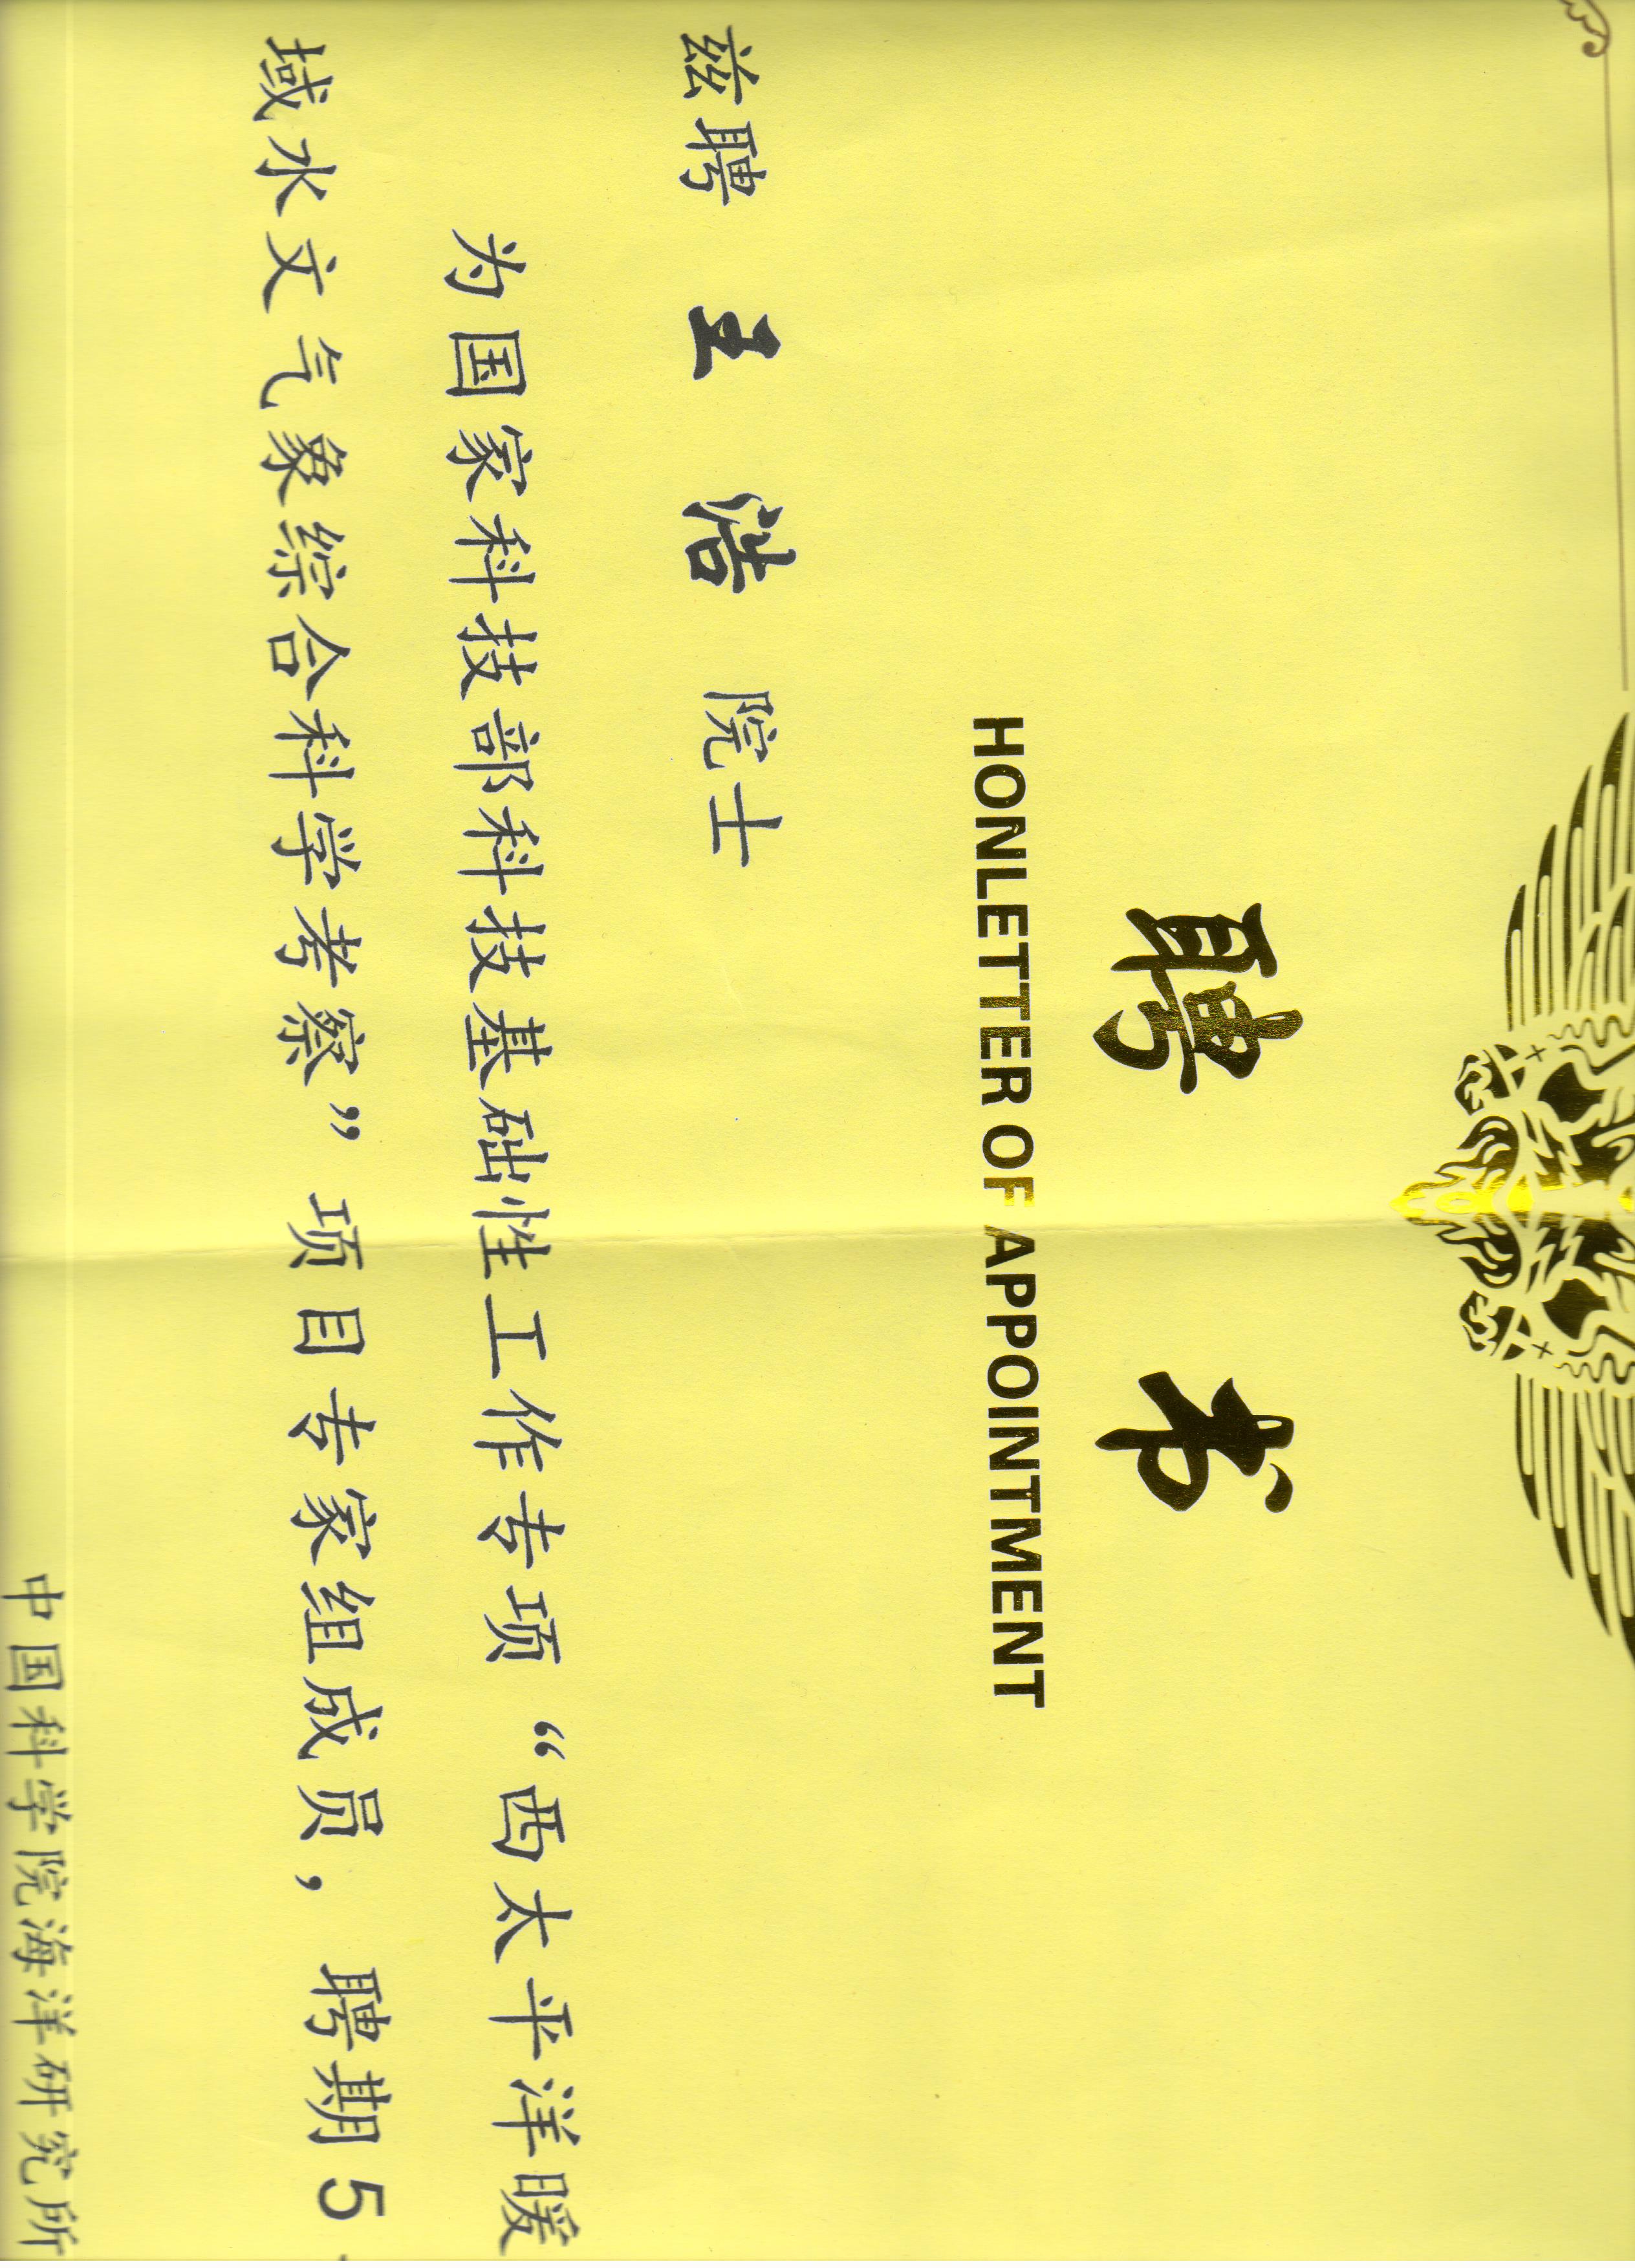 聘书
HONLETTER OF APPOINTMENT
兹聘 王浩 院士
为国家科技部科技基础性工作专项“西太平洋暖
域水文气象综合科学考察”项目专家组成员，聘期5
中国科学院海洋研究所